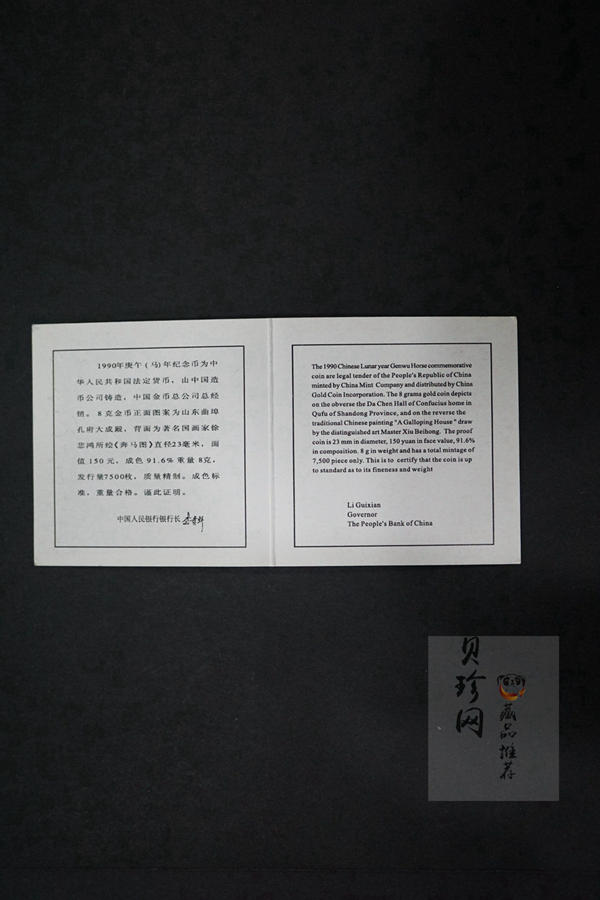 1990年庚午（马）年纪念币为中
华人民共和国法定货币，由中国造
币公司铸造，中国金币总公司总经
销。8克金币正面图案为山东曲埠
孔府大成殿，背面为著名国画家徐
悲鸿所绘《奔马图》直径23毫米，面
值150元，成色91.6％重量8克，
发行量7500枚，质量精制。成色标
准，重量合格。谨此证明。
中国人民银行银行长
The 1990 Chinese Lunar year Genwu Horse commemorative
coin are legal tender of the People's Republic of China
minted by China Mint Company and distributed by China
Gold Coin Incorporation. The 8 grams gold coin depicts
on the obverse the Da Chen Hall of Confucius home in
Qufu of Shandong Province, and on the reverse the
traditional Chinese painting "A Galloping House" draw
by the distinguished art Master Xiu Beihong. The proof
coin is 23 mm in diameter, 150 yuan in face value, 91.6%
in composition. 8 g in weight and has a total mintage of
7,500 piece only. This is to certify that the coin is up
to standard as to its fineness and weight
Li Guixian
Governor
The People's Bank of China
贝珍网
藏品推荐